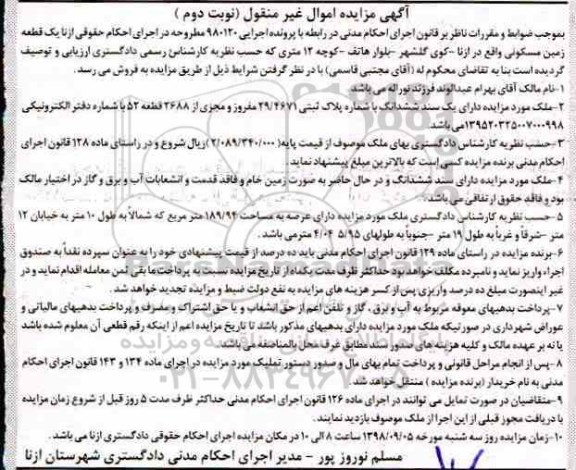 آگهی مزایده اموال غیر منقول (نوبت دوم )
بموجب ضوابط و مقررات ناظر بر قانون اجرای احکام مدنی در رابطه با پرونده اجرایی ۹۸۰۱۲۰ مطروحه در اجرای احکام حقوقی ازنا یک قطعه
زمین مسکونی واقع در ازنا –کوی گلشهر –بلوار هاتف –کوچه ۱۲ متری که حسب نظریه کارشناس رسمی دادگستری ارزیابی و توصیف
گردیده است بنا به تقاضای محکوم له (آقای مجتبی قاسمی) با در نظر گرفتن شرایط ذیل از طریق مزایده به فروش می رسد.
۱-نام مالک آقای بهرام عبدالوند فرزند نوراله می باشد
۲-ملک مورد مزایده دارای یک سند ششدانگ با شماره پلاک ثبتی ۲۹/۴۶۷۱ مفروز و مجزی از ۲۶۸۸ قطعه ۵۲ با شماره دفتر الکترونیکی
۱۳۹۵۲۰۳۲۵۰۰۷۰۰۰۹۹۸می باشد.
۳-حسب نظریه کارشناس دادگستری بهای ملک موصوف از قیمت پایه( ۲/۰۸۹/۳۴۰/۰۰۰)ریال شروع و در راستای ماده ۱۲۸ قانون اجرای
احکام مدنی برنده مزایده کسی است که بالاترین مبلغ پیشنهاد نماید.
۴-ملک مورد مزایده دارای سند ششدانگ و در حال حاضر به صورت زمین خام و فاقد قدمت و انشعابات آب و برق و گاز در اختیار مالک
بود و فاقد حقوق ارتفاقی می باشد.
۵-حسب نظریه کارشناس دادگستری ملک مورد مزایده دارای عرصه به مساحت ۱۸۹/۹۴ متر مربع که شمالاً به طول ۱۰ متر به خیابان ۱۲
متر –شرقاً و غرباً به طول ۱۹ متر –جنوباً به طولهای ۵/۹۵ ۴/۰۴ مترمی باشد.
۶-برنده مزایده در راستای ماده ۱۲۹ قانون اجرای احکام مدنی باید ده درصد از قیمت پیشنهادی خود را به عنوان سپرده نقداً به صندوق
اجراء واریز نماید و نامبرده مکلف خواهد بود حداکثر ظرف مدت یکماه از تاریخ مزایده نسبت به پرداخت مابقی ثمن معامله اقدام نماید و در
غیر اینصورت مبلغ ده درصد واریزی پس از کسر هزینه های مزایده به نفع دولت ضبط و مزایده تجدید خواهد شد.
۷-پرداخت بدهیهای معوقه مربوط به آب و برق ، گاز و تلفن اعم از حق انشعاب و یا حق اشتراک و مصرف و پرداخت بدهیهای مالیاتی و
عوارض شهرداری در صورتیکه ملک مورد مزایده دارای بدهیهای مذکور باشد تا تاریخ مزایده اعم از اینکه رقم قطعی آن معلوم شده باشد
یا نه بر عهده مالک و کلیه هزینه های صدور سند مطابق عرف محل بالمناصفه می باشد.
۸-پس از انجام مراحل قانونی و پرداخت تمام بهای مال و صدور دستور تملیک مورد مزایده در اجرای ماده ۱۳۴ و ۱۴۳ قانون اجرای احکام
مدنی به نام خریدار (برنده مزایده ) منتقل خواهد شد.
۹-متقاضیان در صورت تمایل می توانند در اجرای ماده ۱۲۶ قانون اجرای احکام مدنی حداکثر ظرف مدت ۵ روز قبل از شروع زمان مزایده
با دریافت مجوز قبلی از این اجرا از ملک موصوف بازدید نمایند.
۱۰-زمان مزایده روز سه شنبه مورخه ۱۳۹۸/۰۹/۰۵ ساعت ۸ الی ۱۰ در مکان مزایده اجرای احکام حقوقی دادگستری ازنا می باشد.
مسلم نوروز پور – مدیر اجرای احکام مدنی دادگستری شهرستان ازنا